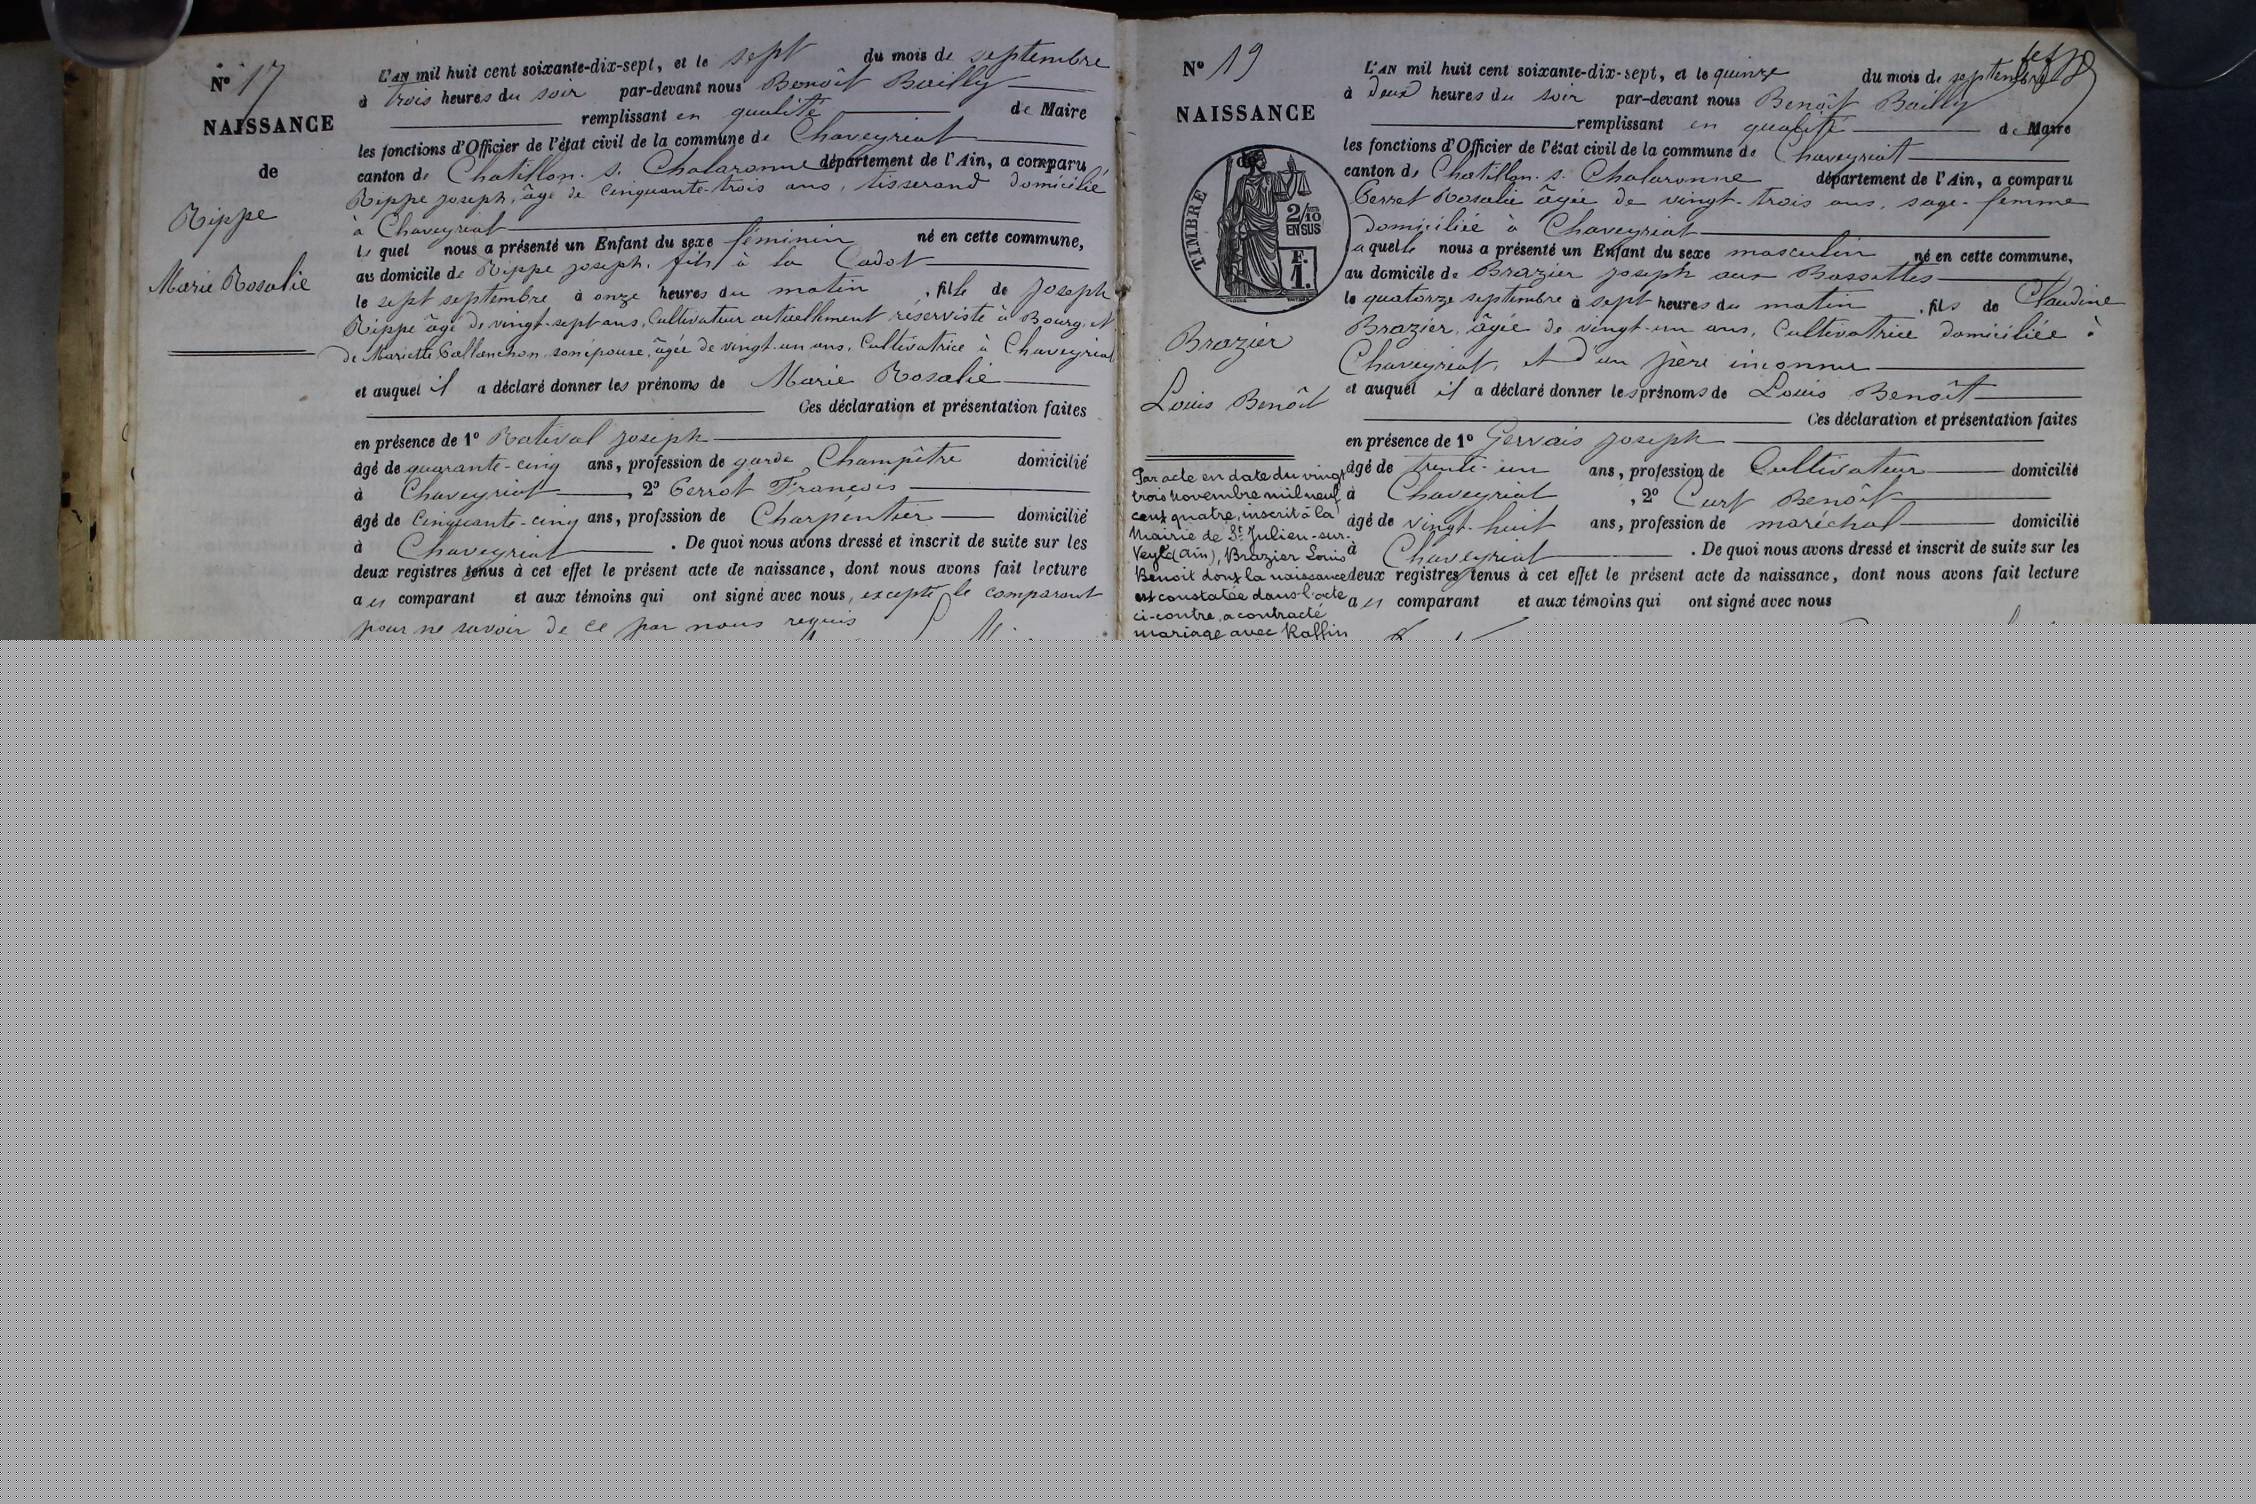 N° 17
NAISSANCE
de
Rippe
Marie Rosalie
L'AN mil huit cent soixante-dix-sept, et le sept du mois de septembre
à trois heures du soir par-devant nous Benoît Bailly
remplissant en qualité de Maire
les fonctions d'Officier de l'état civil de la commune de Chaveyriat
canton de Chatillon s. Chalaronne département de l'Ain, a comparu
Rippe joseph, âgé de cinquante-trois ans, tisserand domicilié
à Chaveyriat
le quel nous a présenté un Enfant du sexe féminin né en cette commune,
au domicile de Rippe joseph, fils à la Cadot
le sept septembre à onze heures du matin, fille de joseph
Rippe âgé de vingt-sept ans, Cultivateur actuellment réserviste à Bourg, et
de Mariette son épouse, âgée de vingt-un ans, Cultivatrice à Chaveyriat
et auquel il a déclaré donner les prénoms de Marie Rosalie
Ces déclaration et présentation faites
en présence de 1° Rativel joseph
âgé de quarante-cinq ans, profession de garde Champêtre domicilié
à Chaveyriat, 2° Perrot François
âgé de cinquante-cinq ans, profession de Charpentier domicilié
à Chaveyriat. De quoi nous avons dressé et inscrit de suite sur les
deux registres tenus à cet effet le présent acte de naissance, dont nous avons fait lecture
aux comparant et aux témoins qui ont signé avec nous, excepté le comparant
pour ne savoir de ce par nous requis
N° 19
NAISSANCE
de
TIMBRE
2/10
EN SUS
F.
1.
Brazier
Louis Benoît
Par acte en date du vingt
trois novembre mil neuf
cent quatre, inscrit à la
Mairie de St Julien-sur-
Veyle (Ain), Brazier Louis
Benoit dont la naissance
est constatée dans l'acte
ci-contre, a contracté
mariage avec Raffin
L'AN mil huit cent soixante-dix-sept, et le quinze du mois de septembre
à deux heures du soir par-devant nous Benoît Bailly
remplissant en qualité de Maire
les fonctions d'Officier de l'état civil de la commune de Chaveyriat
canton de Chatillon s. Chalaronne département de l'Ain, a comparu
Perret Rosalie âgée de vingt-trois ans, sage-femme
domiciliée à Chaveyriat
laquelle nous a présenté un Enfant du sexe masculin né en cette commune,
au domicile de Brazier joseph aux Bassattes
le quatorze septembre à sept heures du matin, fils de Claudine
Brazier, âgée de vingt-un ans, Cultivatrice domiciliée à
Chaveyriat, et d'un père inconnu
et auquel il a déclaré donner les prénoms de Louis Benoît
Ces déclaration et présentation faites
en présence de 1° Gervais joseph
âgé de trente-un ans, profession de Cultivateur domicilié
à Chaveyriat, 2° Curt Benoît
âgé de vingt-huit ans, profession de maréchal domicilié
à Chaveyriat. De quoi nous avons dressé et inscrit de suite sur les
deux registres tenus à cet effet le présent acte de naissance, dont nous avons fait lecture
aux comparant et aux témoins qui ont signé avec nous